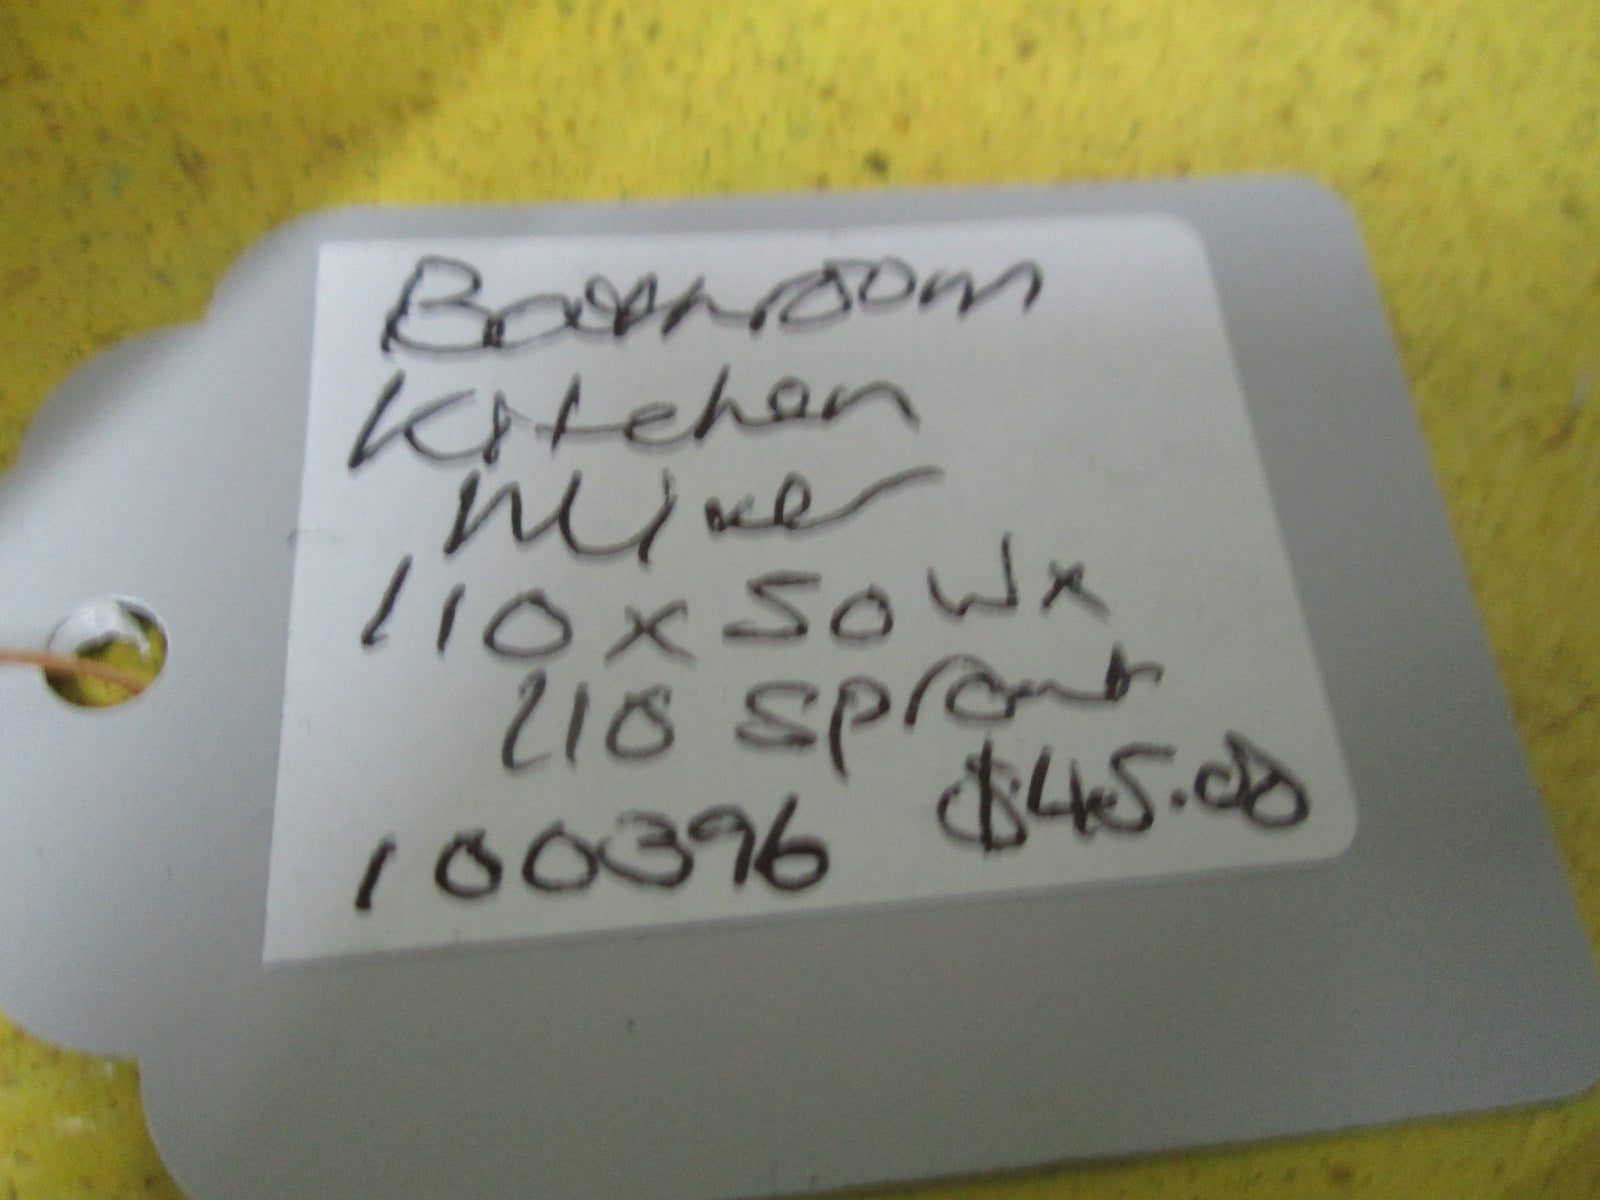 Bathroom
Kitchen
Mixer
110 x 50 W x
210 Sprout
100396 $45.00